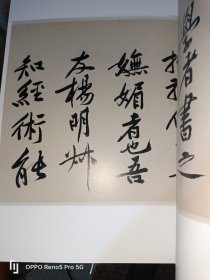 學者書之
嫵媚者也吾
友楊明叔
知經術能
OPPO Reno5 Pro 5G